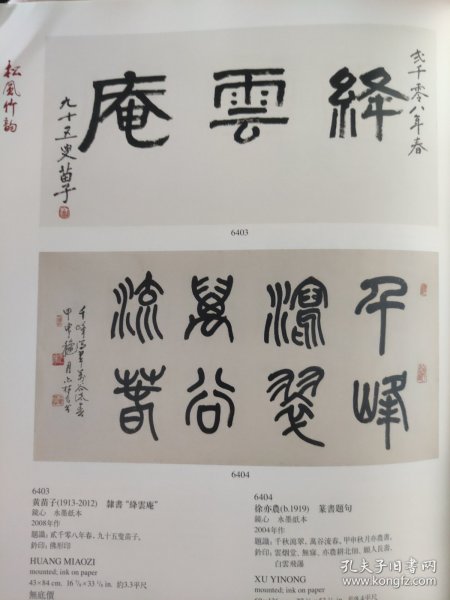 松風竹韵
弍千零八年春
絳雲庵
九十五叟苗子
6403
千峰
滴翠
萬谷
流春
6404
6403
黃苗子(1913-2012) 隸書“絳雲庵”
鏡心 水墨紙本
2008年作
題識:貳千零八年春,九十五叟苗子,
鈐印:佛形印
HUANG MIAOZI
mounted; ink on paper
43×84 cm. 約3.3平尺
無底價
6404
徐亦農(b.1919) 篆書題句
鏡心 水墨紙本
2004年作
題識:千秋流翠,萬谷流春,甲申秋月亦農書,
鈐印:雲烟堂、無寐、亦農耕北佃、願人長壽、
白雲飛瀑
XU YINONG
mounted; ink on paper
約8.4平尺
孔夫子旧书网